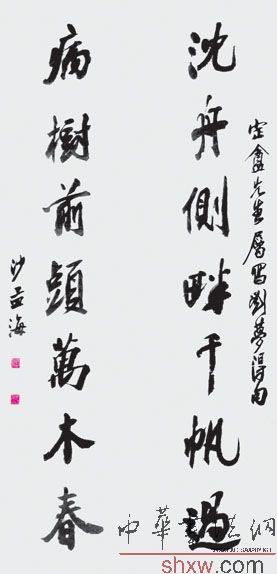 定盦先生屬劉夢得句
沈舟側畔千帆過
病樹前頭萬木春
沙孟海
中華書法網
shxw.com